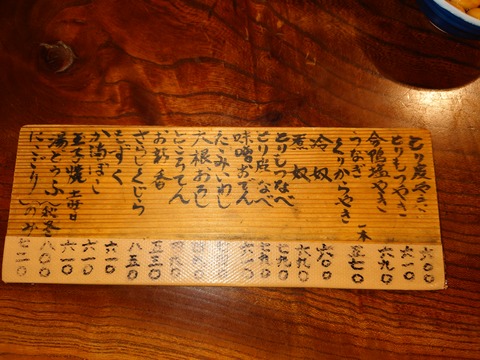 とり皮やき 六〇〇
とりもつやき 六一〇
合鴨塩やき 六九〇
うなぎ
くりからやき 一本 五七〇
冷奴 六〇〇
煮奴 六九〇
とりもつなべ 七九〇
とり皮なべ 七九〇
味噌おでん
たたみいわし
大根おろし
ところてん
お新香 五三〇
さらしくじら 八五〇
もずく 六一〇
かまぼこ 六一〇
玉子焼 六一〇
湯どうふ 八〇〇
にこごり 七二〇